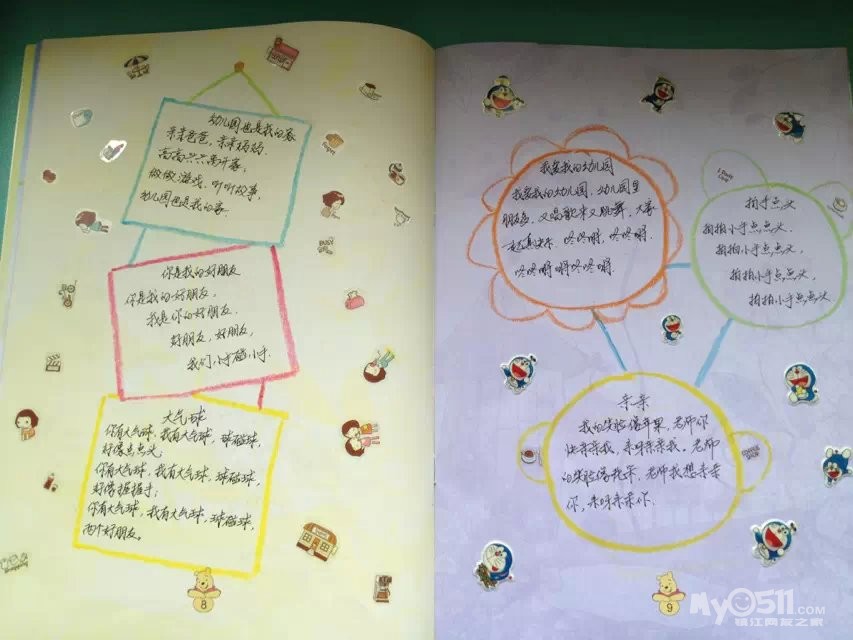 幼儿园也是我的家
亲亲爸爸，亲亲妈妈，
高高兴兴离开家，
做做游戏，听听故事，
幼儿园也是我的家
你是我的好朋友
你是我的好朋友，
我是你的好朋友.
好朋友，好朋友，
我们小手碰小手.
大气球
你有大气球，我有大气球，球碰球，
好像点点头
你有大气球，我有大气球，球碰球，
好像握握手；
你有大气球，我有大气球，球碰球，
两个好朋友。
8
我爱我的幼儿园
我爱我的幼儿园，幼儿园里
朋友多，又唱歌来又跳舞，大家
一起真快乐. 咚咚锵，咚咚锵.
咚咚锵锵咚咚锵.
拍手点头
拍拍小手点点头.
拍拍小手点点头，
拍拍小手点点头，
拍拍小手点点头
亲亲
我的笑脸像苹果，老师你
快亲亲我，亲呀亲亲我。老师
的笑脸像花朵，老师我想亲亲
你，亲呀亲亲你.
9
My0511.com
镇江网友之家